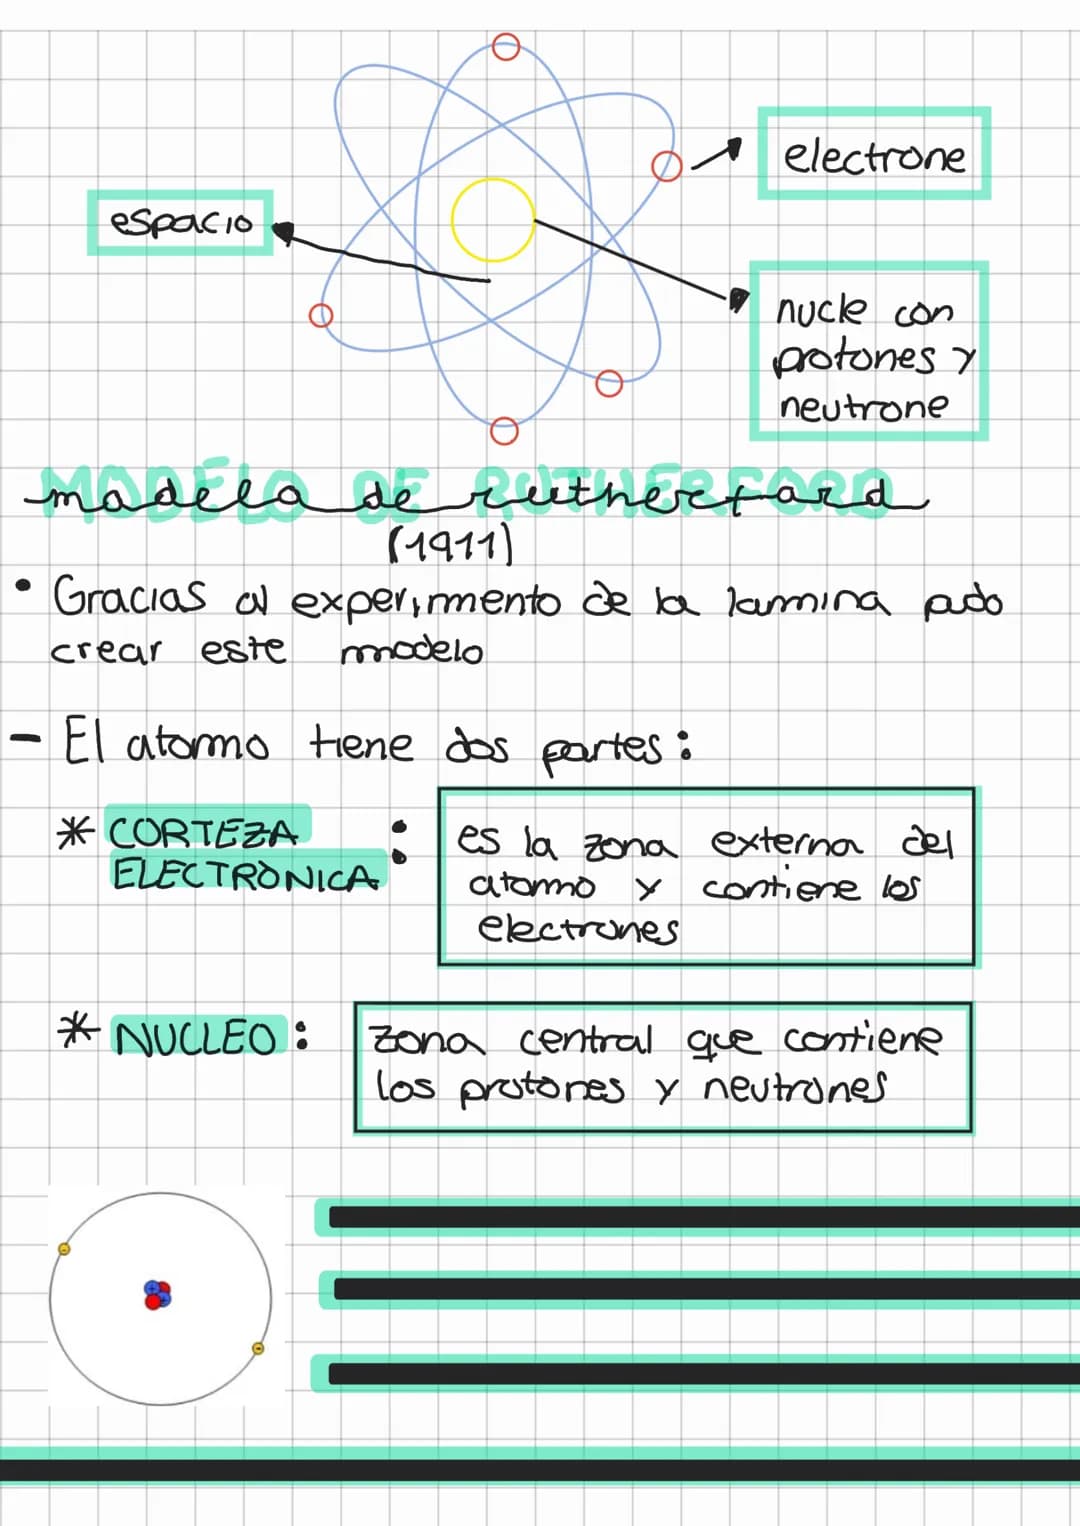 electrone
espacio
nucle con
protones y
neutrone
MODELO DE RUTHERFORD
modelo de rutherford
(1911)
• Gracias al experimento de la lamina pudo
crear este modelo
- El atomo tiene dos partes:
* CORTEZA
ELECTRÒNICA:
es la zona externa del
atomo y contiene los
electrones
* NUCLEO:
zona central que contiene
los protones y neutrones